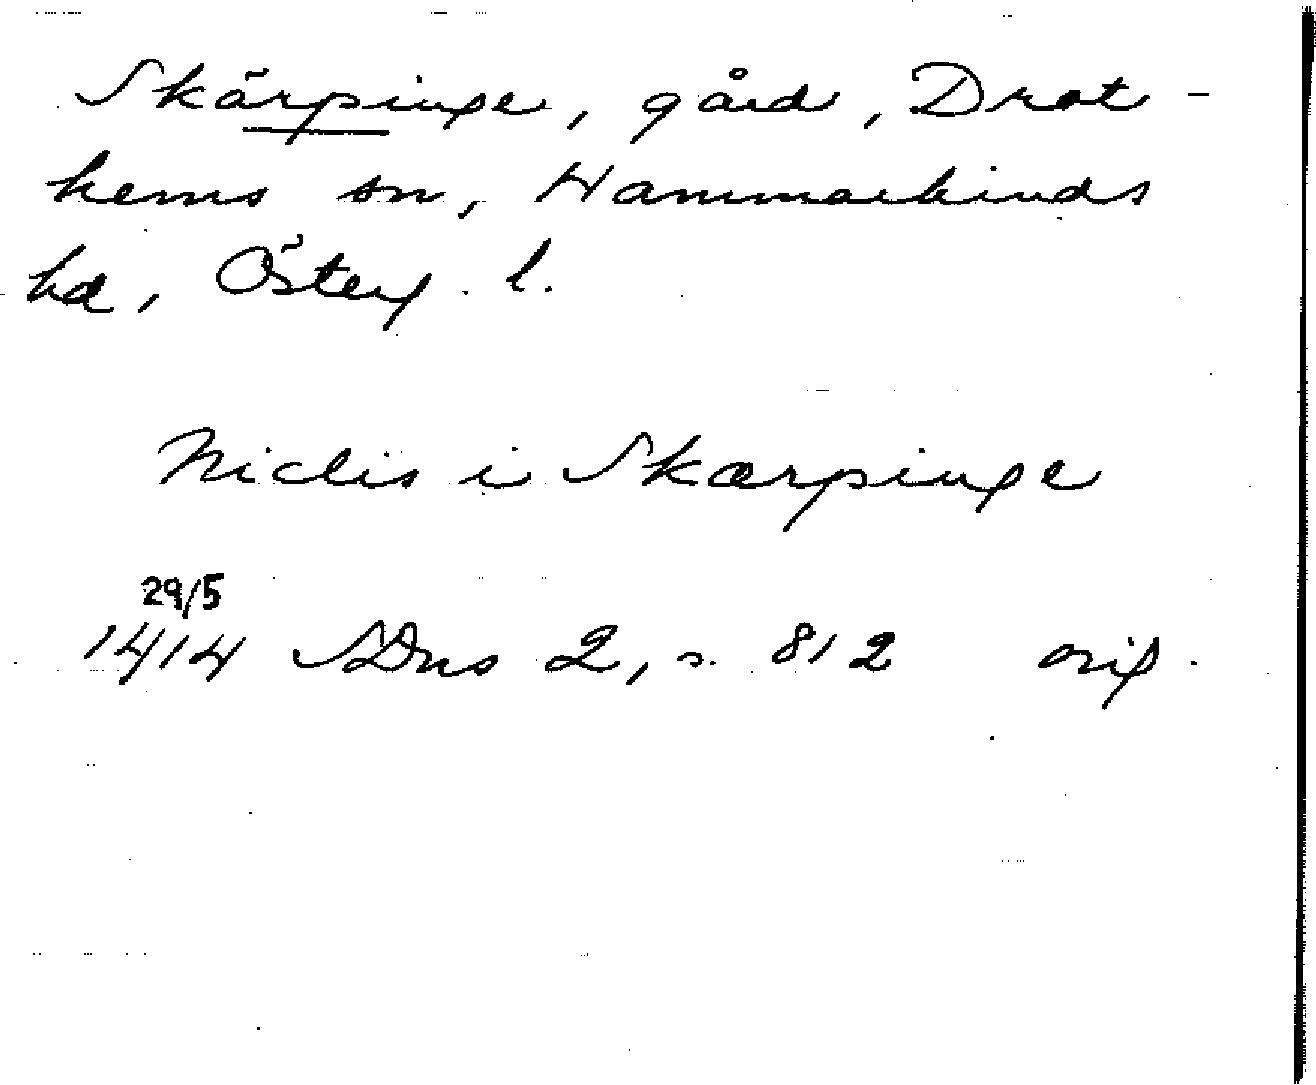 Skärpinge, gård, Drot-
hems sn, Hammarkinds
hd, Österg. l.
Niclis i Skærpinge
29/5
1414 SDns 2, s. 812 orig.